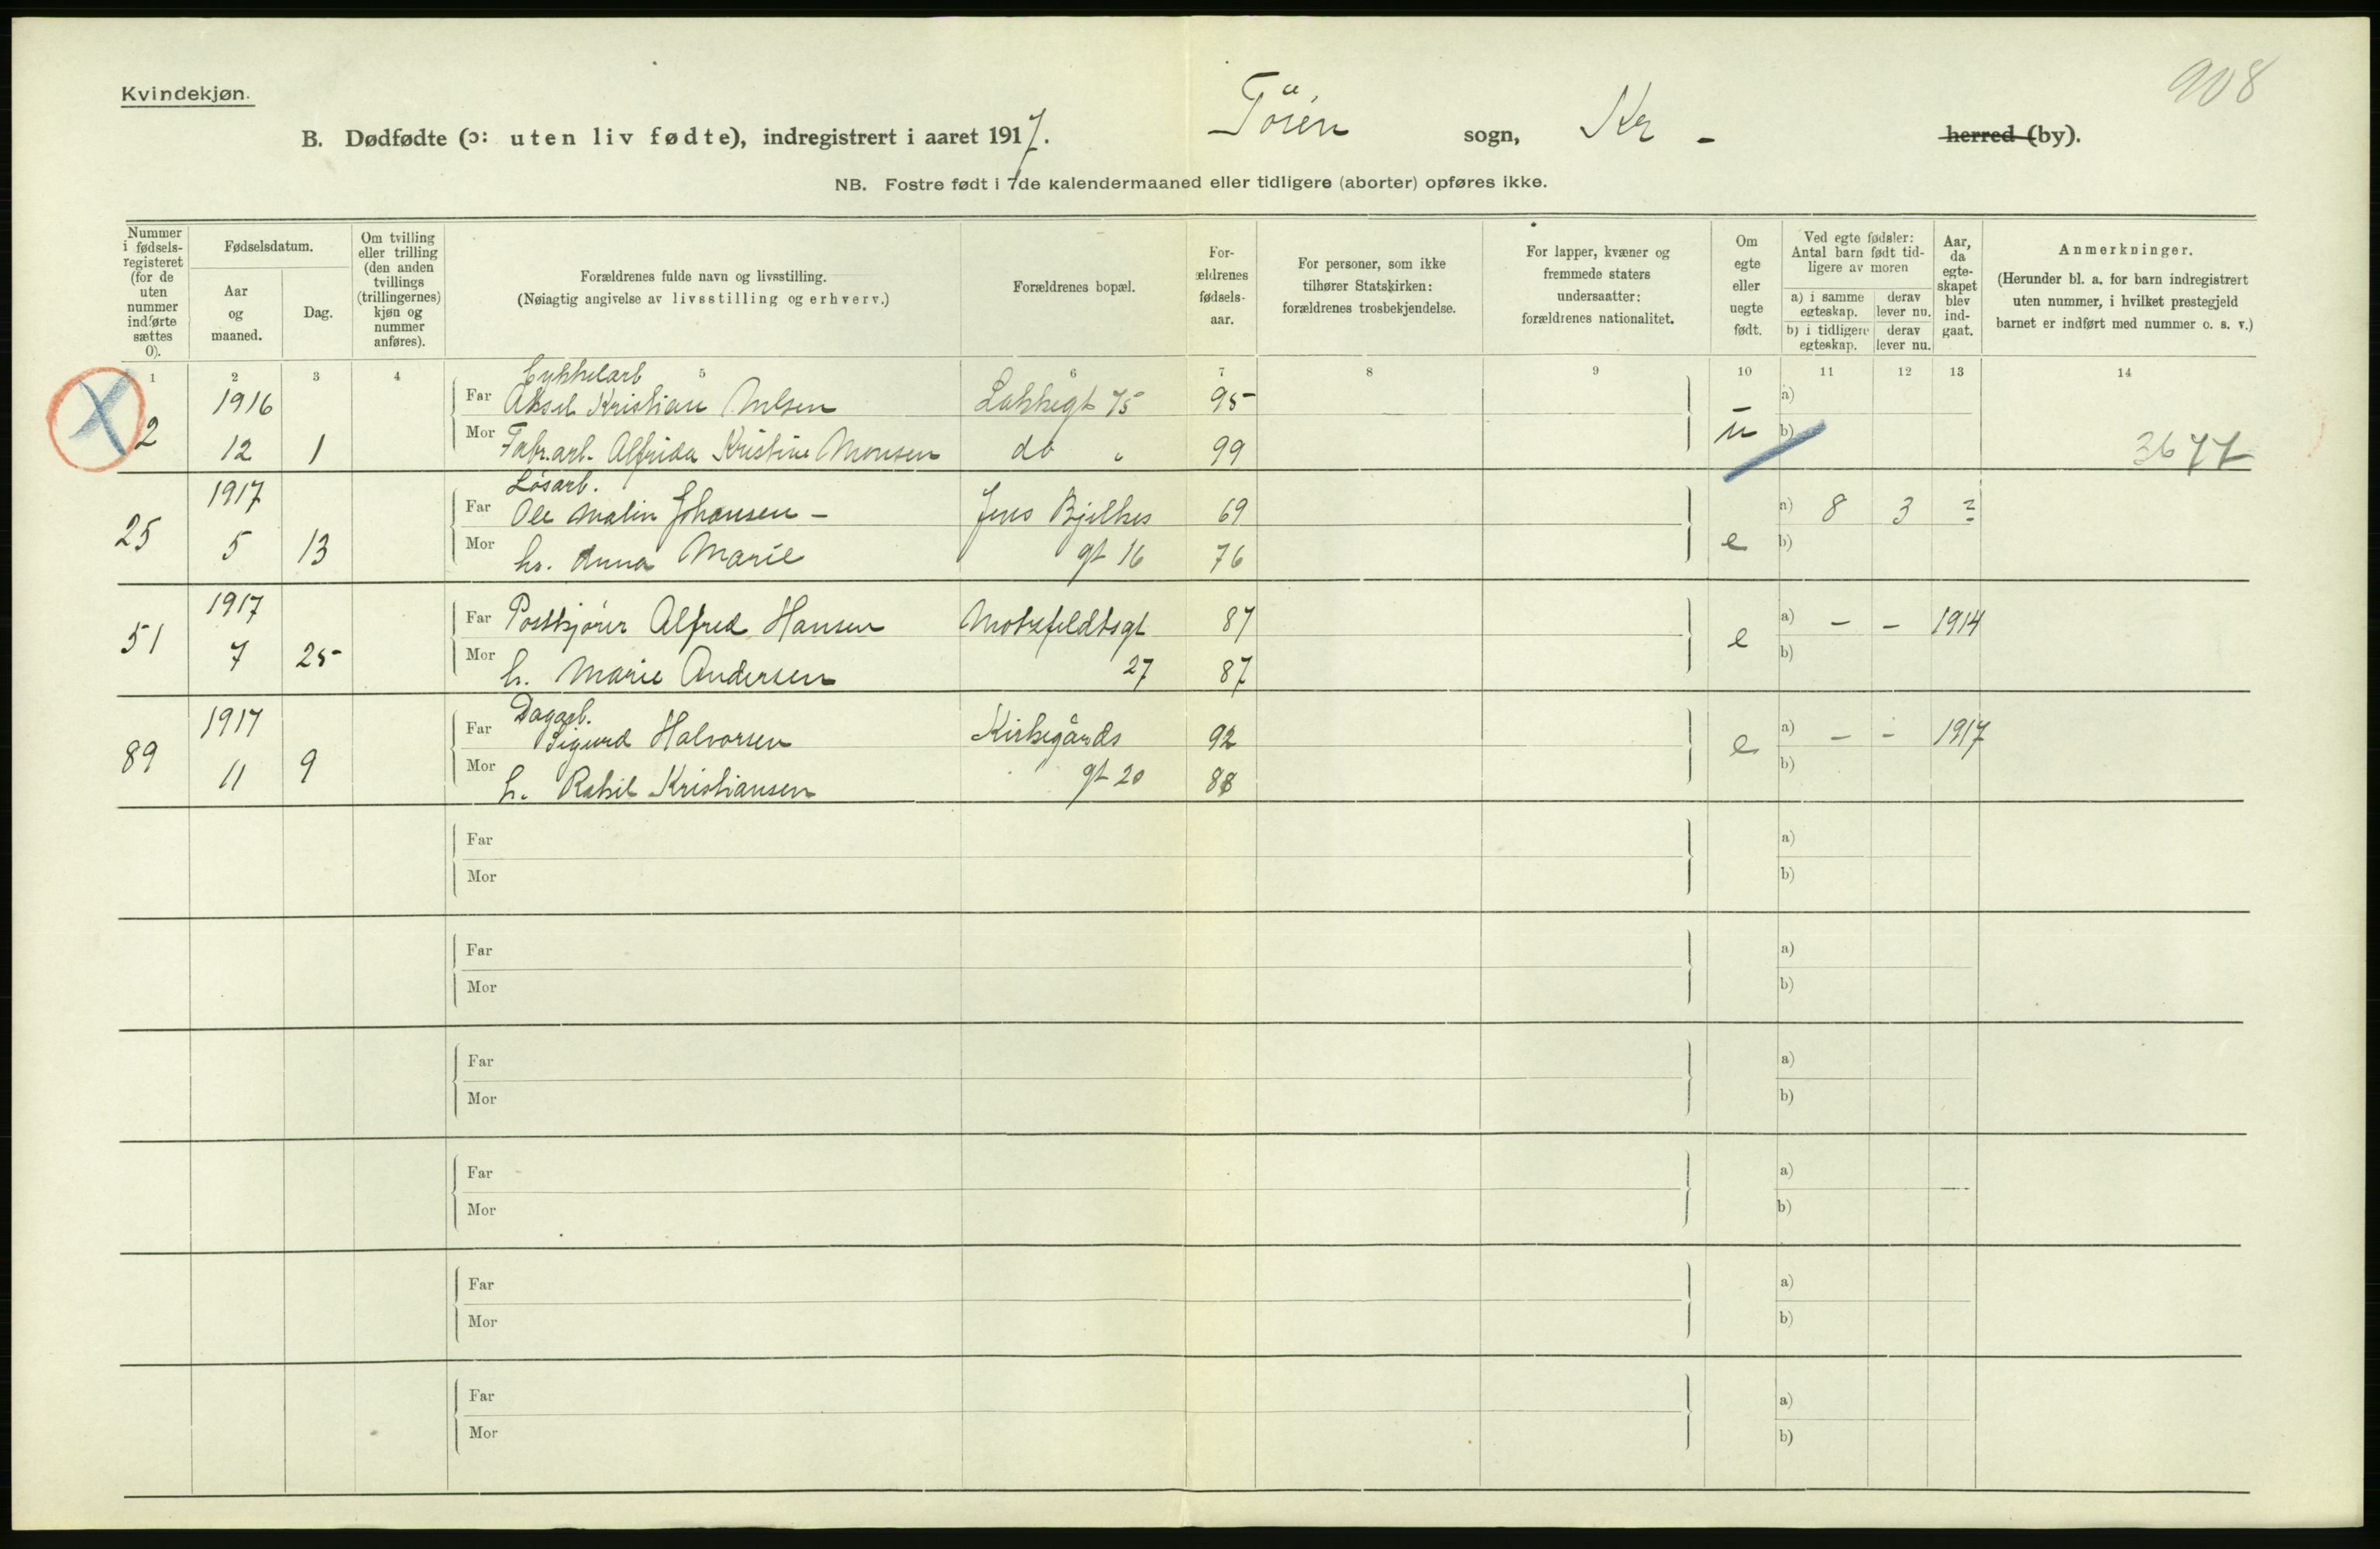 908
Kvindekjøn.
B. Dødfødte (ɔ: uten liv fødte), indregistrert i aaret 1917. Töien sogn, Kr - herred (by).
NB. Fostre født i 7de kalendermaaned eller tidligere (aborter) opføres ikke.
Nummer i fødsels-registeret (for de uten nummer indførte sættes 0).
Fødselsdatum.
Aar og maaned.
Dag.
Om tvilling eller trilling (den anden tvillings (trillingernes) kjøn og nummer anføres).
Forældrenes fulde navn og livsstilling.
(Nøiagtig angivelse av livsstilling og erhverv.)
Forældrenes bopæl.
For-ældrenes fødsels-aar.
For personer, som ikke tilhører Statskirken: forældrenes trosbekjendelse.
For lapper, kvæner og fremmede staters undersaatter: forældrenes nationalitet.
Om egte eller uegte født.
Ved egte fødsler: Antal barn født tid-ligere av moren
a) i samme egteskap. derav lever nu.
b) i tidligere egteskap. derav lever nu.
Aar, da egte-skapet blev ind-gaat.
Anmerkninger.
(Herunder bl. a. for barn indregistrert uten nummer, i hvilket prestegjeld barnet er indført med nummer o. s. v.)
1 2 3 4 5 6 7 8 9 10 11 12 13 14
X
Cykkelarb
1916 Far Aksel Kristian Nilsen Lakkegt 75 95 a)
2 12 1 Mor Fabr.arb. Alfrida Kristine Monsen do " 99 u b) 3677
Løsarb.
1917 Far Ole Malin Johansen - Jens Bjelkes 69 a) 8 3 ?
25 5 13 Mor hs. Anna Marie gt 16 76 e b)
1917 Far Postkjører Alfred Hansen Motzfeldtsgt 87 a) - - 1914
51 7 25 Mor h. Marie Andersen 27 87 e b)
Dagarb.
1917 Far Sigurd Halvorsen Kirkegårds 92 a) - - 1917
89 11 9 Mor h. Rakil Kristiansen gt 20 88 e b)
Far a)
Mor b)
Far a)
Mor b)
Far a)
Mor b)
Far a)
Mor b)
Far a)
Mor b)
Far a)
Mor b)